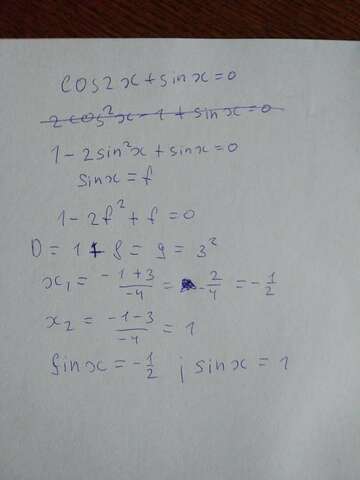 cos2x+sinx=0
2cos²x-1+sinx=0
1-2sin²x+sinx=0
sinx=f
1-2f²+f=0
D=1+8=9=3²
x₁=\frac{-1+3}{-4}=-\frac{2}{4}=-\frac{1}{2}
x₂=\frac{-1-3}{-4}=1
sinx=-\frac{1}{2} ; sinx=1